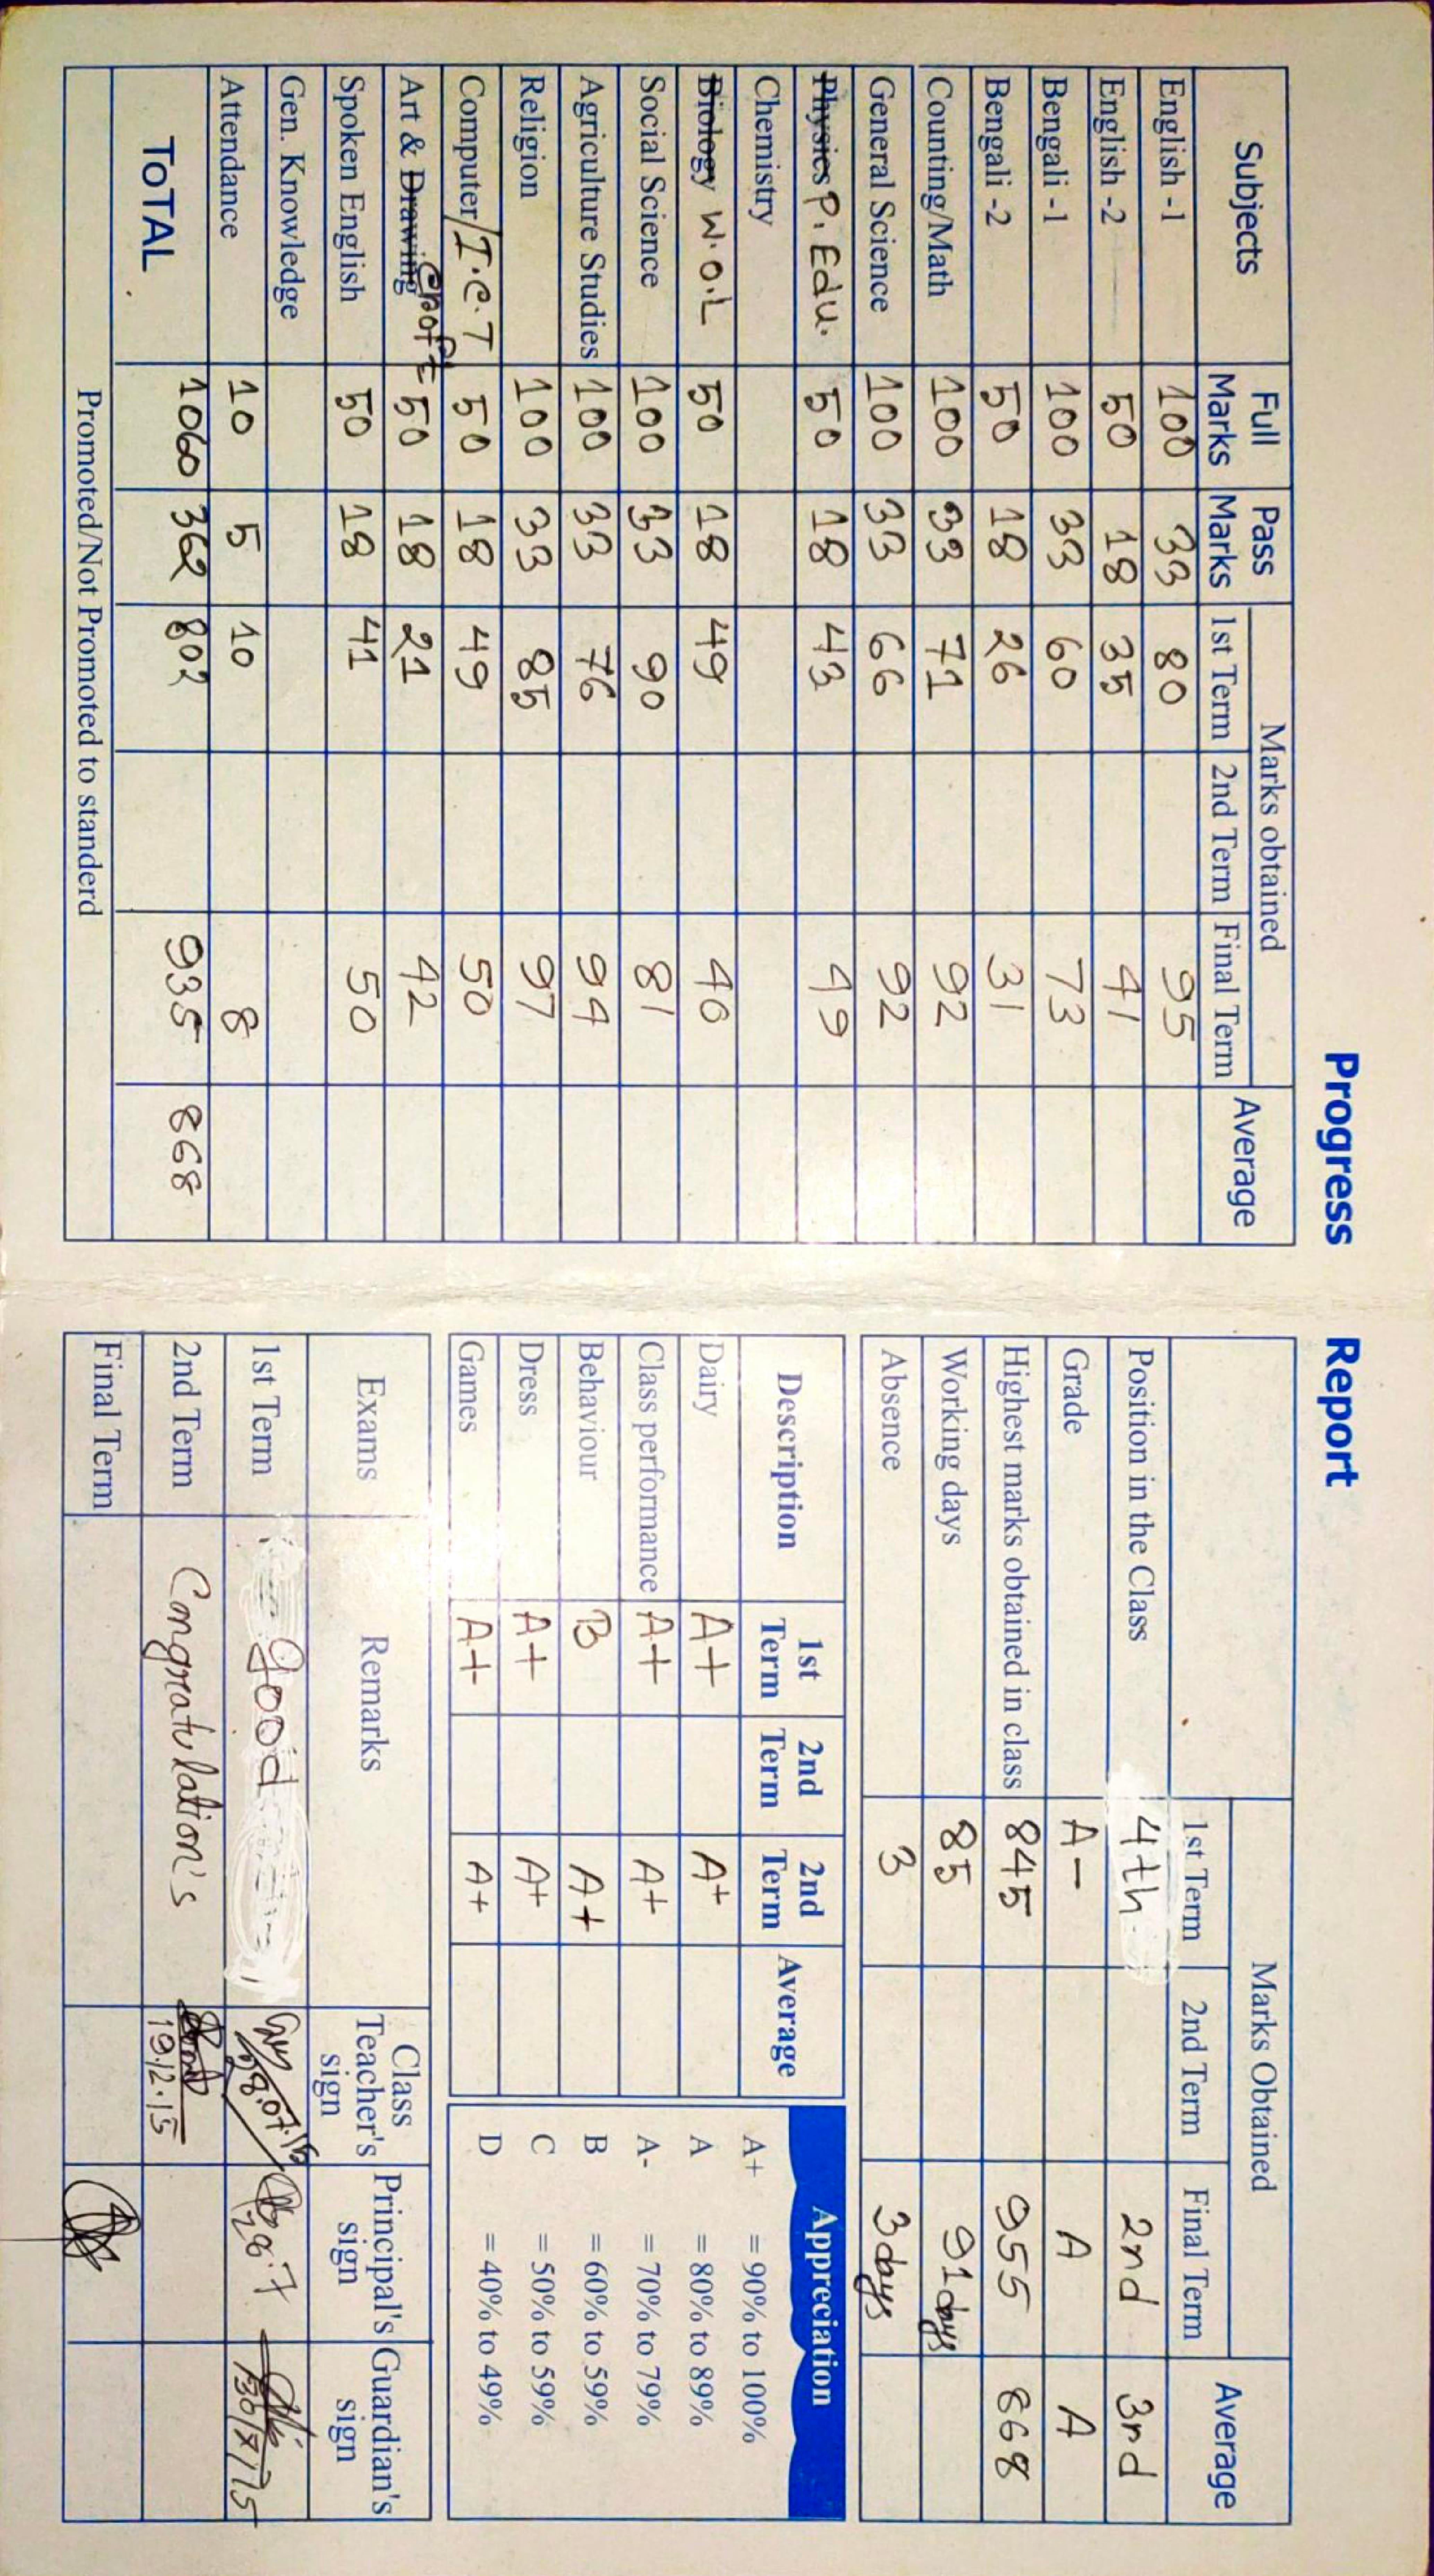 Progress Report
Subjects Full Marks Pass Marks Marks obtained Average
1st Term 2nd Term Final Term
English -1 100 33 80 95
English -2 50 18 35 41
Bengali -1 100 33 60 73
Bengali -2 50 18 26 31
Counting/Math 100 33 71 92
General Science 100 33 66 92
Physics P. Edu. 50 18 43 49
Chemistry
Biology W.O.L 50 18 49 40
Social Science 100 33 90 81
Agriculture Studies 100 33 76 94
Religion 100 33 85 97
Computer/I.C.T 50 18 49 50
Art & Drawing Craft 50 18 21 42
Spoken English 50 18 41 50
Gen. Knowledge
Attendance 10 5 10 8
ToTAL 1060 362 802 935 868
Promoted/Not Promoted to standerd
Marks Obtained Average
1st Term 2nd Term Final Term
Position in the Class 4th 2nd 3rd
Grade A- A A
Highest marks obtained in class 845 955 868
Working days 85 91 days
Absence 3 3 days
Description 1st Term 2nd Term 2nd Term Average
Dairy A+ A+
Class performance A+ A+
Behaviour B A+
Dress A+ A+
Games A+ A+
Appreciation
A+ = 90% to 100%
A = 80% to 89%
A- = 70% to 79%
B = 60% to 59%
C = 50% to 59%
D = 40% to 49%
Exams Remarks Class Teacher's sign Principal's sign Guardian's sign
1st Term Good 28.07.15 28.7 30/7/15
2nd Term Congratulation's 19.12.15
Final Term